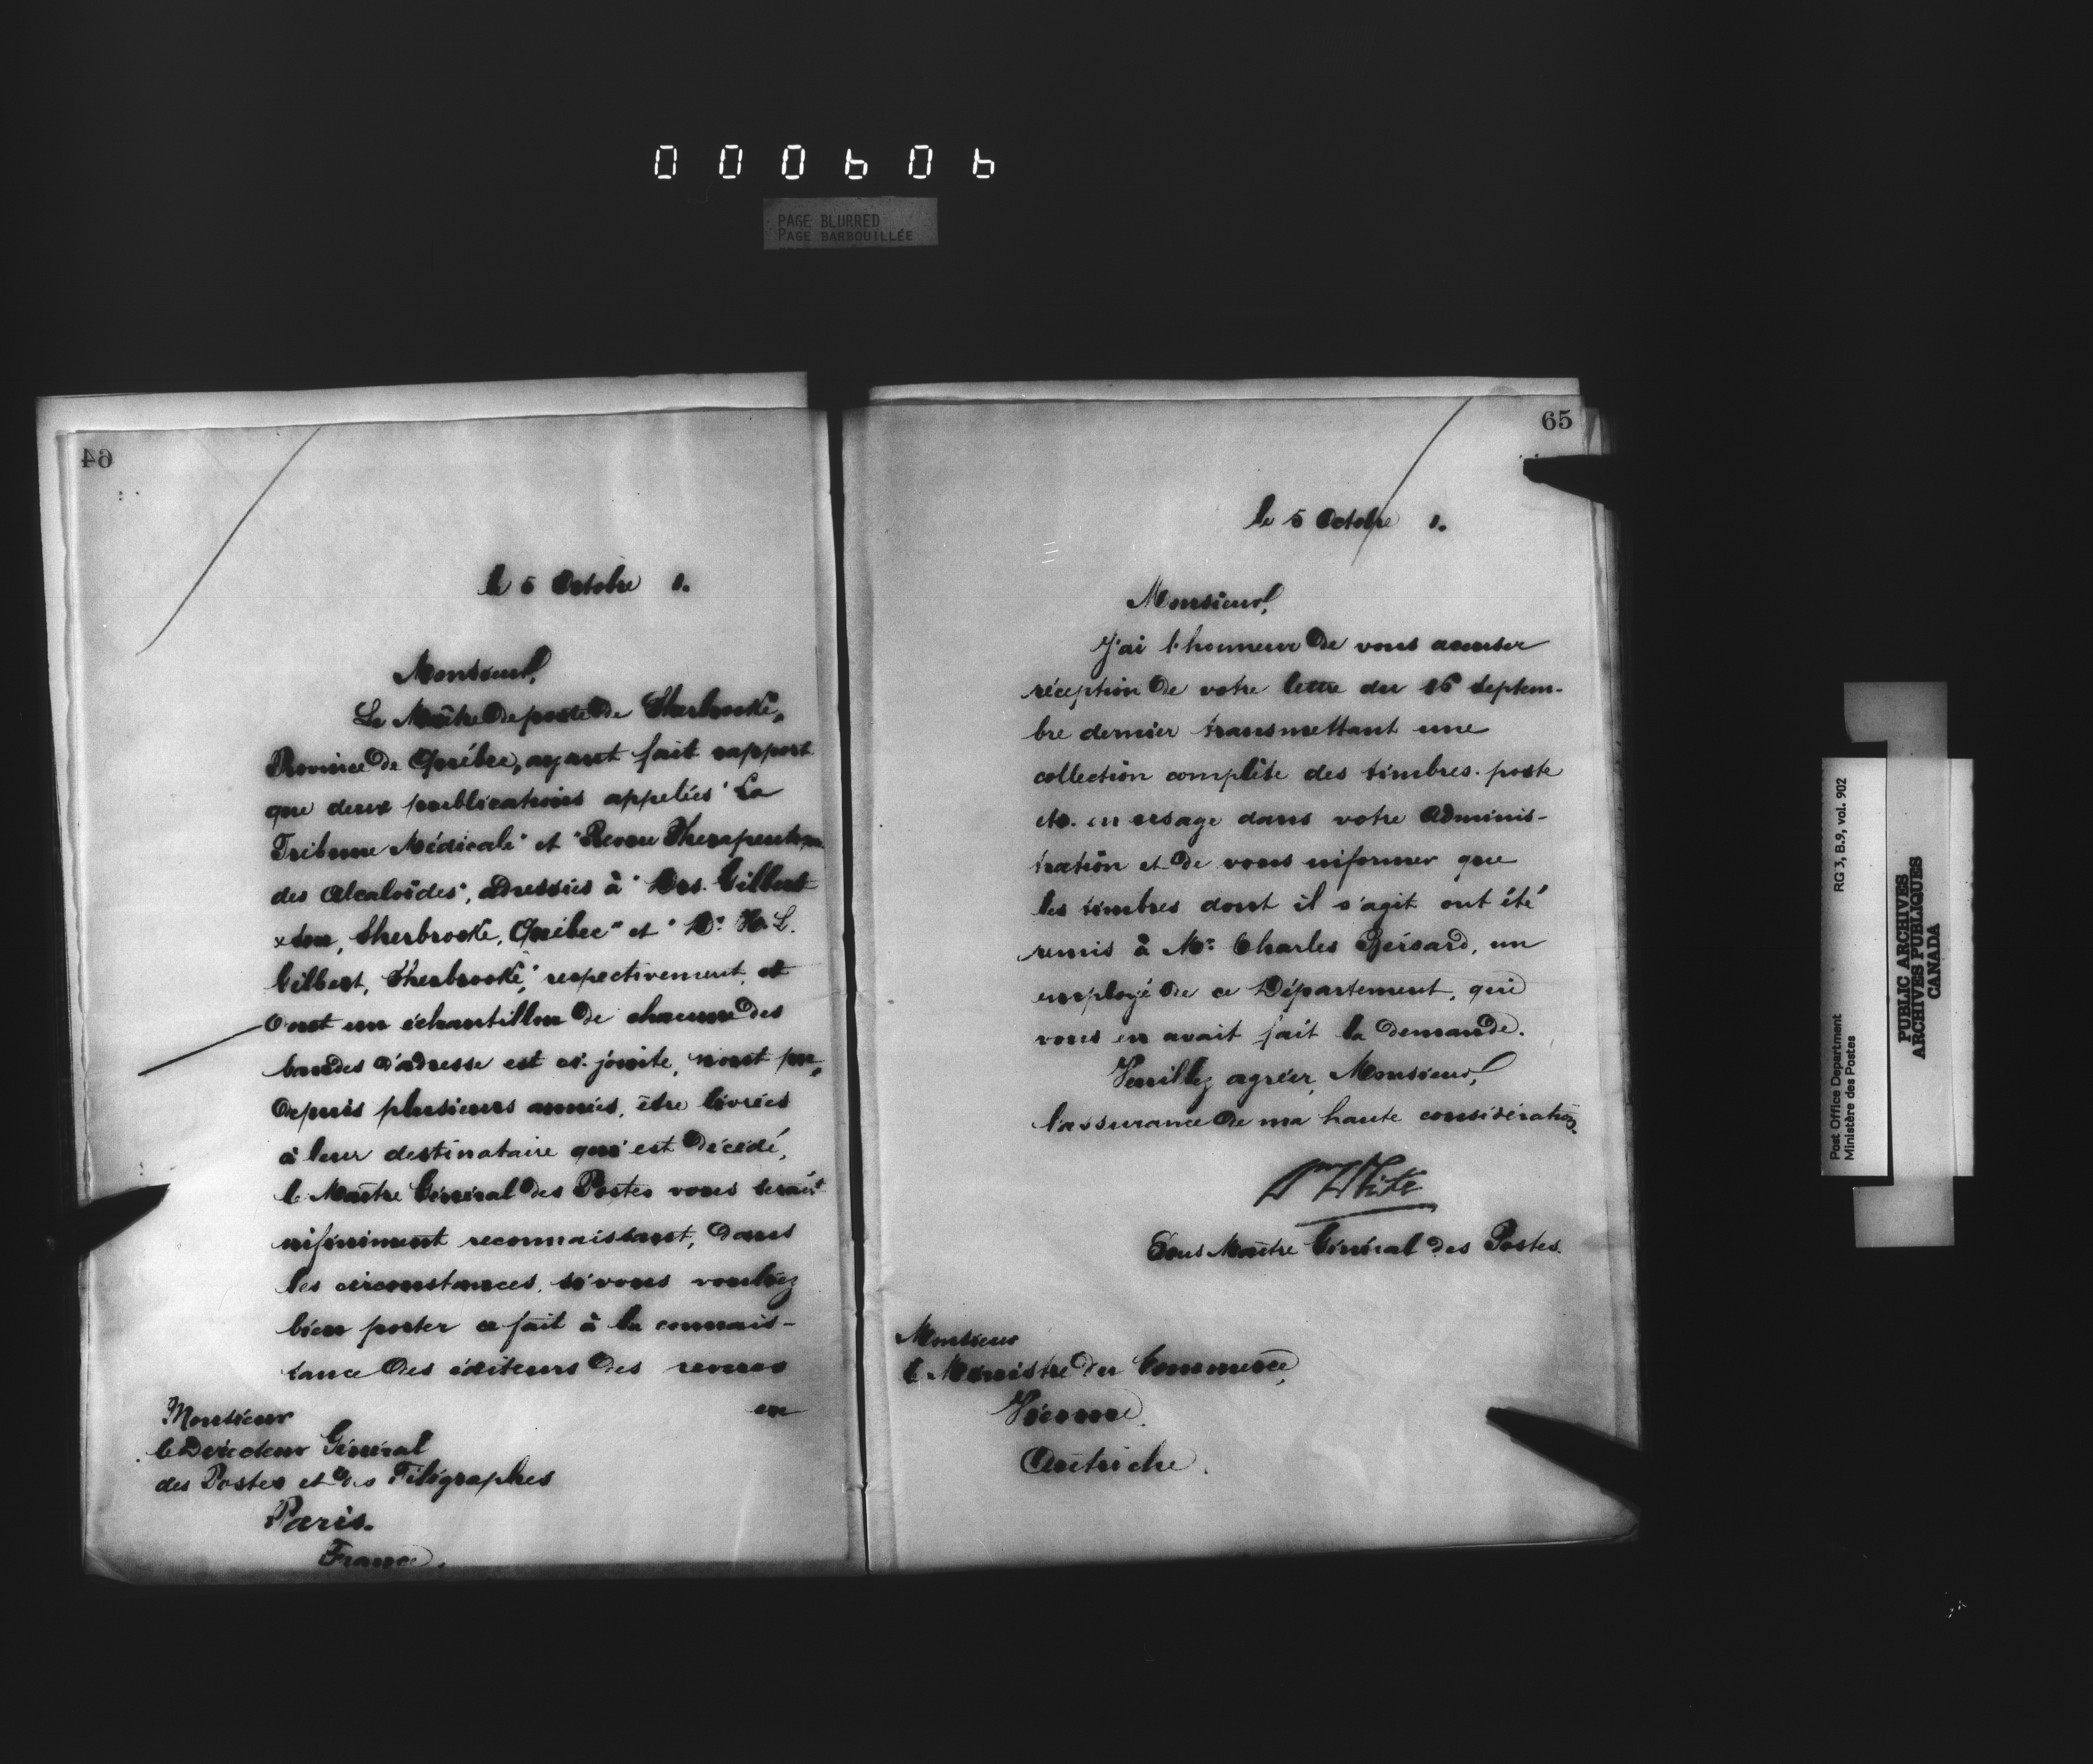 000606
PAGE BLURRED
PAGE BARBOUILLÉE
64
le 5 Octobre 1.
Monsieur,
Le Maître de poste de Sherbrooke,
Province de Québec, ayant fait rapport
que deux publications appelées "La
Tribune Médicale" et "Revue Therapeutique
des Alcaloïdes", adressées à "Drs. Gilbert
& Son, Sherbrooke, Québec" et "Dr. H. L.
Gilbert, Sherbrooke," respectivement, et
dont un échantillon de chacune des
bandes d'adresse est ci-jointe, n'ont pu,
depuis plusieurs années, être livrées
à leur destinataire qui est décédé,
le Maître Général des Postes vous serait
infiniment reconnaissant, dans
les circonstances, si vous vouliez
bien porter ce fait à la connais-
sance des éditeurs des revues
en
Monsieur
le Directeur Général
des Postes et des Télégraphes
Paris.
France.
65
le 5 Octobre 1.
Monsieur,
J'ai l'honneur de vous accuser
réception de votre lettre du 16 Septem-
bre dernier transmettant une
collection complète des timbres-poste
etc. en usage dans votre Adminis-
tration et de vous informer que
les timbres dont il s'agit ont été
remis à Mr. Charles Gérard, un
employé de ce Département, qui
vous en avait fait la demande.
Veuillez agréer, Monsieur,
l'assurance de ma haute considération.
Wm White
Sous Maître Général des Postes.
Monsieur
le Ministre du Commerce,
Vienne,
Autriche.
Post Office Department
Ministère des Postes
RG 3, B.9, vol. 902
PUBLIC ARCHIVES
ARCHIVES PUBLIQUES
CANADA